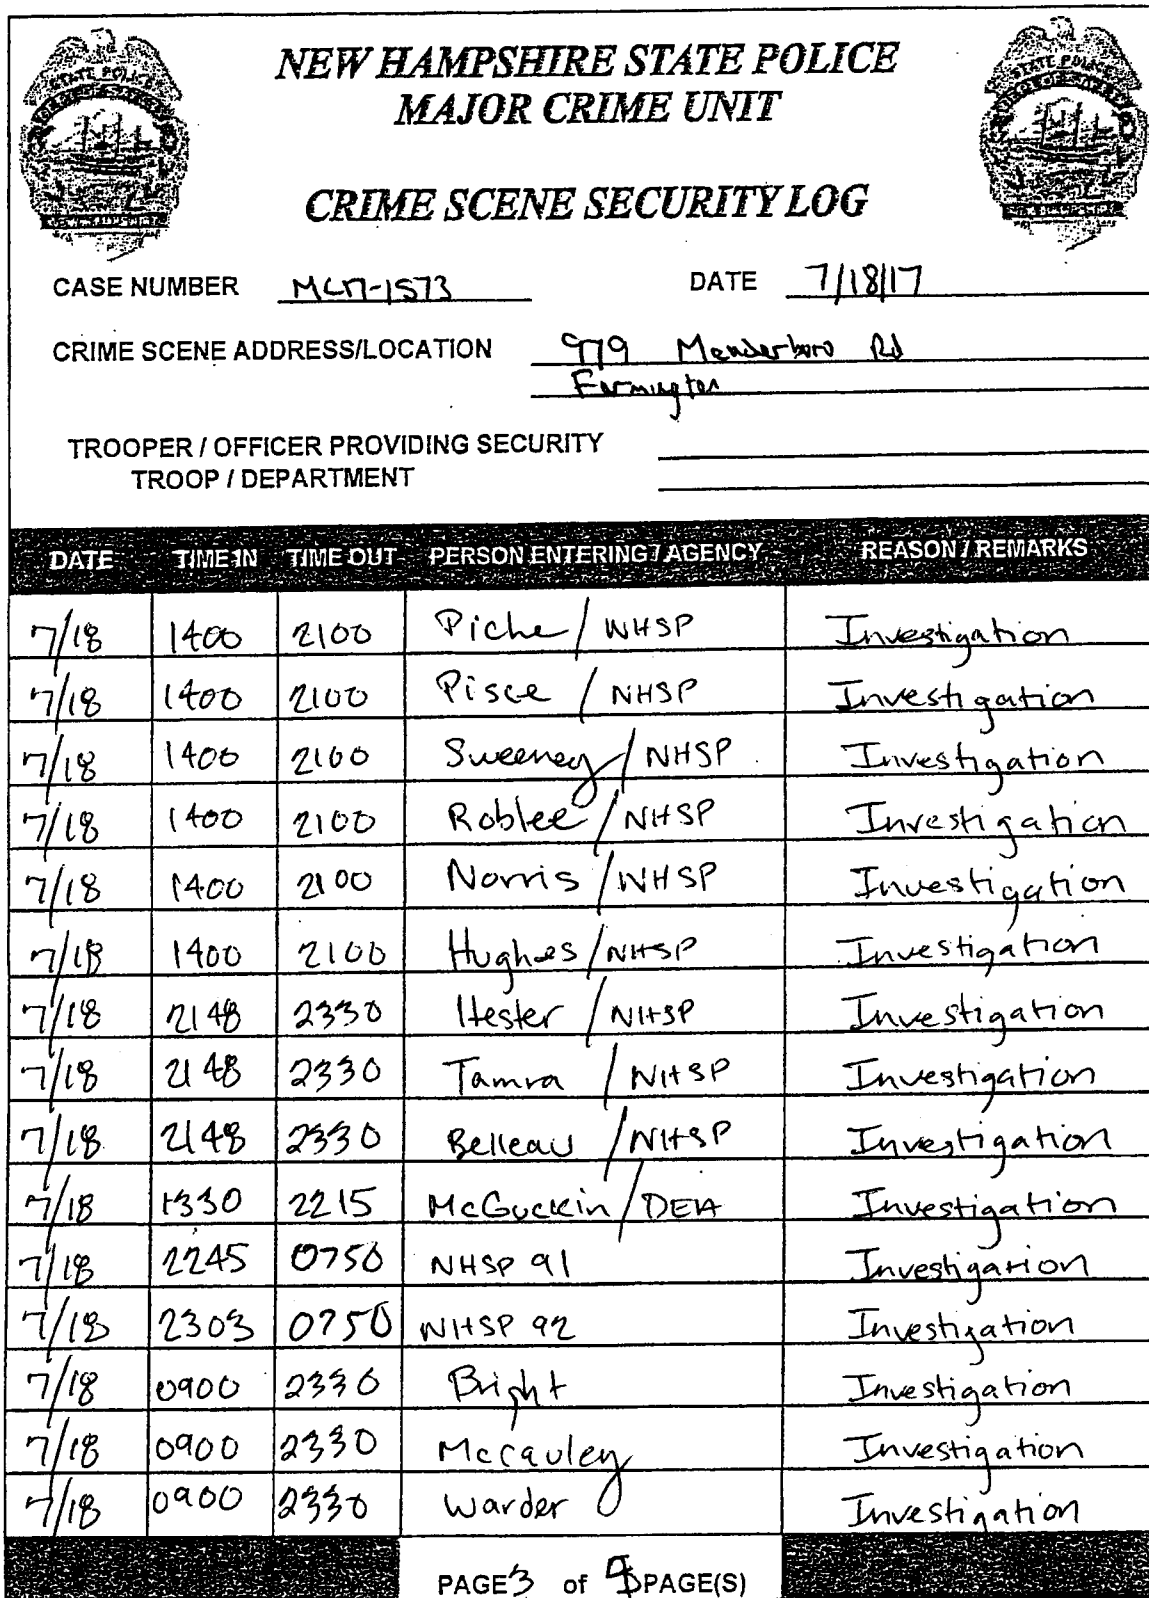 NEW HAMPSHIRE STATE POLICE
MAJOR CRIME UNIT
CRIME SCENE SECURITY LOG
STATE POLICE STATE POLICE
CASE NUMBER MC17-1573 DATE 7/18/17
CRIME SCENE ADDRESS/LOCATION 979 Meaderboro Rd
Farmington
TROOPER / OFFICER PROVIDING SECURITY
TROOP / DEPARTMENT
DATE TIME IN TIME OUT PERSON ENTERING / AGENCY REASON / REMARKS
7/18 1400 2100 Piche / NHSP Investigation
7/18 1400 2100 Pisce / NHSP Investigation
7/18 1400 2100 Sweeney / NHSP Investigation
7/18 1400 2100 Roblee / NHSP Investigation
7/18 1400 2100 Norris / NHSP Investigation
7/18 1400 2100 Hughes / NHSP Investigation
7/18 2148 2330 Hester / NHSP Investigation
7/18 2148 2330 Tamra / NHSP Investigation
7/18 2148 2330 Belleau / NHSP Investigation
7/18 1330 2215 McGuckin / DEA Investigation
7/18 2245 0750 NHSP 91 Investigation
7/18 2303 0750 NHSP 92 Investigation
7/18 0900 2330 Bright Investigation
7/18 0900 2330 McCauley Investigation
7/18 0900 2330 Warder Investigation
PAGE 3 of PAGE(S)